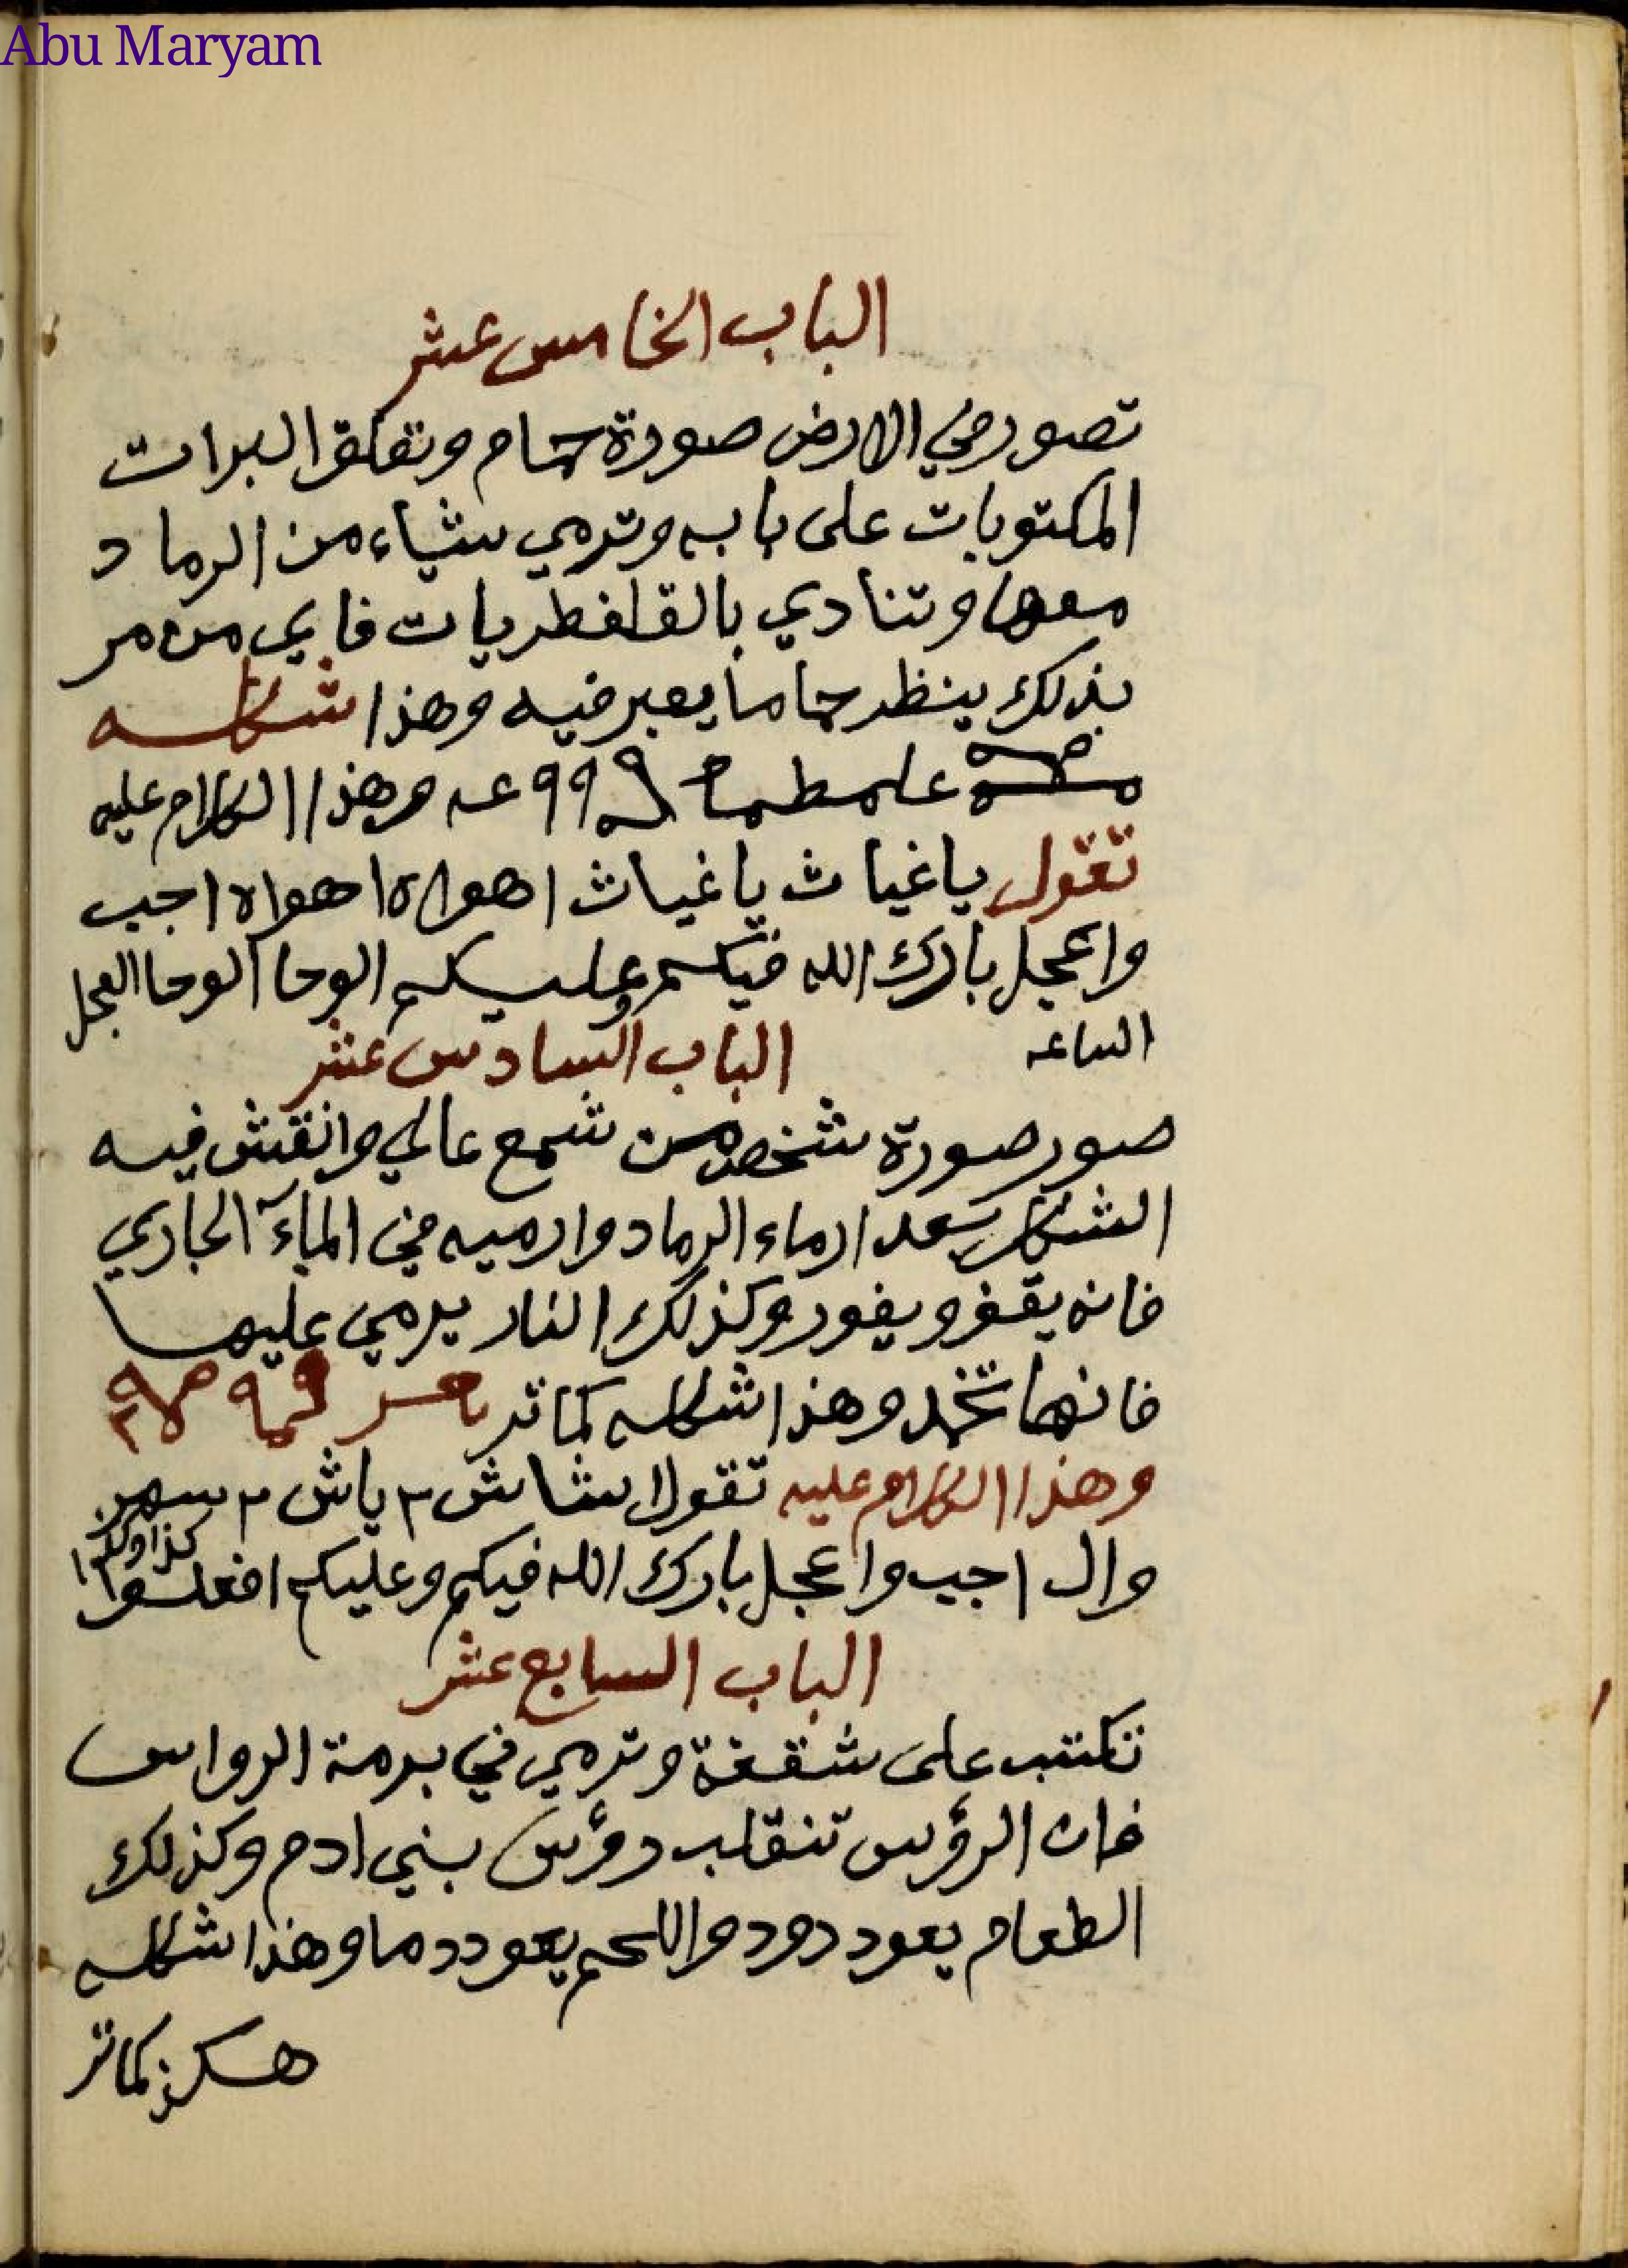 Abu Maryam
الباب الخامس عشر
تصور في الارض صورة حمام وتعلق البرات
المكتوبات على بابه وترمي شياء من الرماد
معها وتنادي بالقلفطريات فاي من مر
بذلك ينظر حماما يعبر فيه وهذا شكله
وهذا الكلام عليه
تقول ياغياث ياغياث اهواه اهواه اجب
واعجل بارك الله فيكم وعليكم الوحا الوحا العجل
الساعه
الباب السادس عشر
صور صورة شخص من شمع عالي وانقش فيه
الشكل بعد ارماء الرماد وارميه في المآء الجاري
فانه يقف ويفور وكذلك النار يرمي عليها
فانها تخمد وهذا شكله كما تر
وهذا الكلام عليه تقول شاش ٢ ياش ٢
وال اجيب واعجل بارك الله فيكم وعليكم افعلوا كذا وكذا
الباب السابع عشر
تكتب على شقفة وترمي في برمة الرواس
فان الرؤس تنقلب رؤس بني ادم وكذلك
الطعام يعود دود واللحم يعود دما وهذا شكله
هكذ كما تر